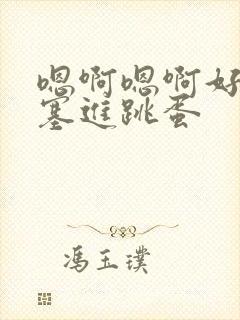 嗯啊嗯啊好
塞进跳蛋
冯玉璞